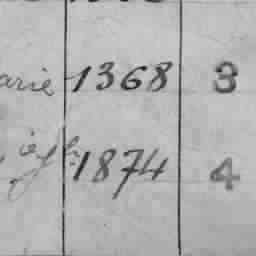 arie 1368 3
1874 4